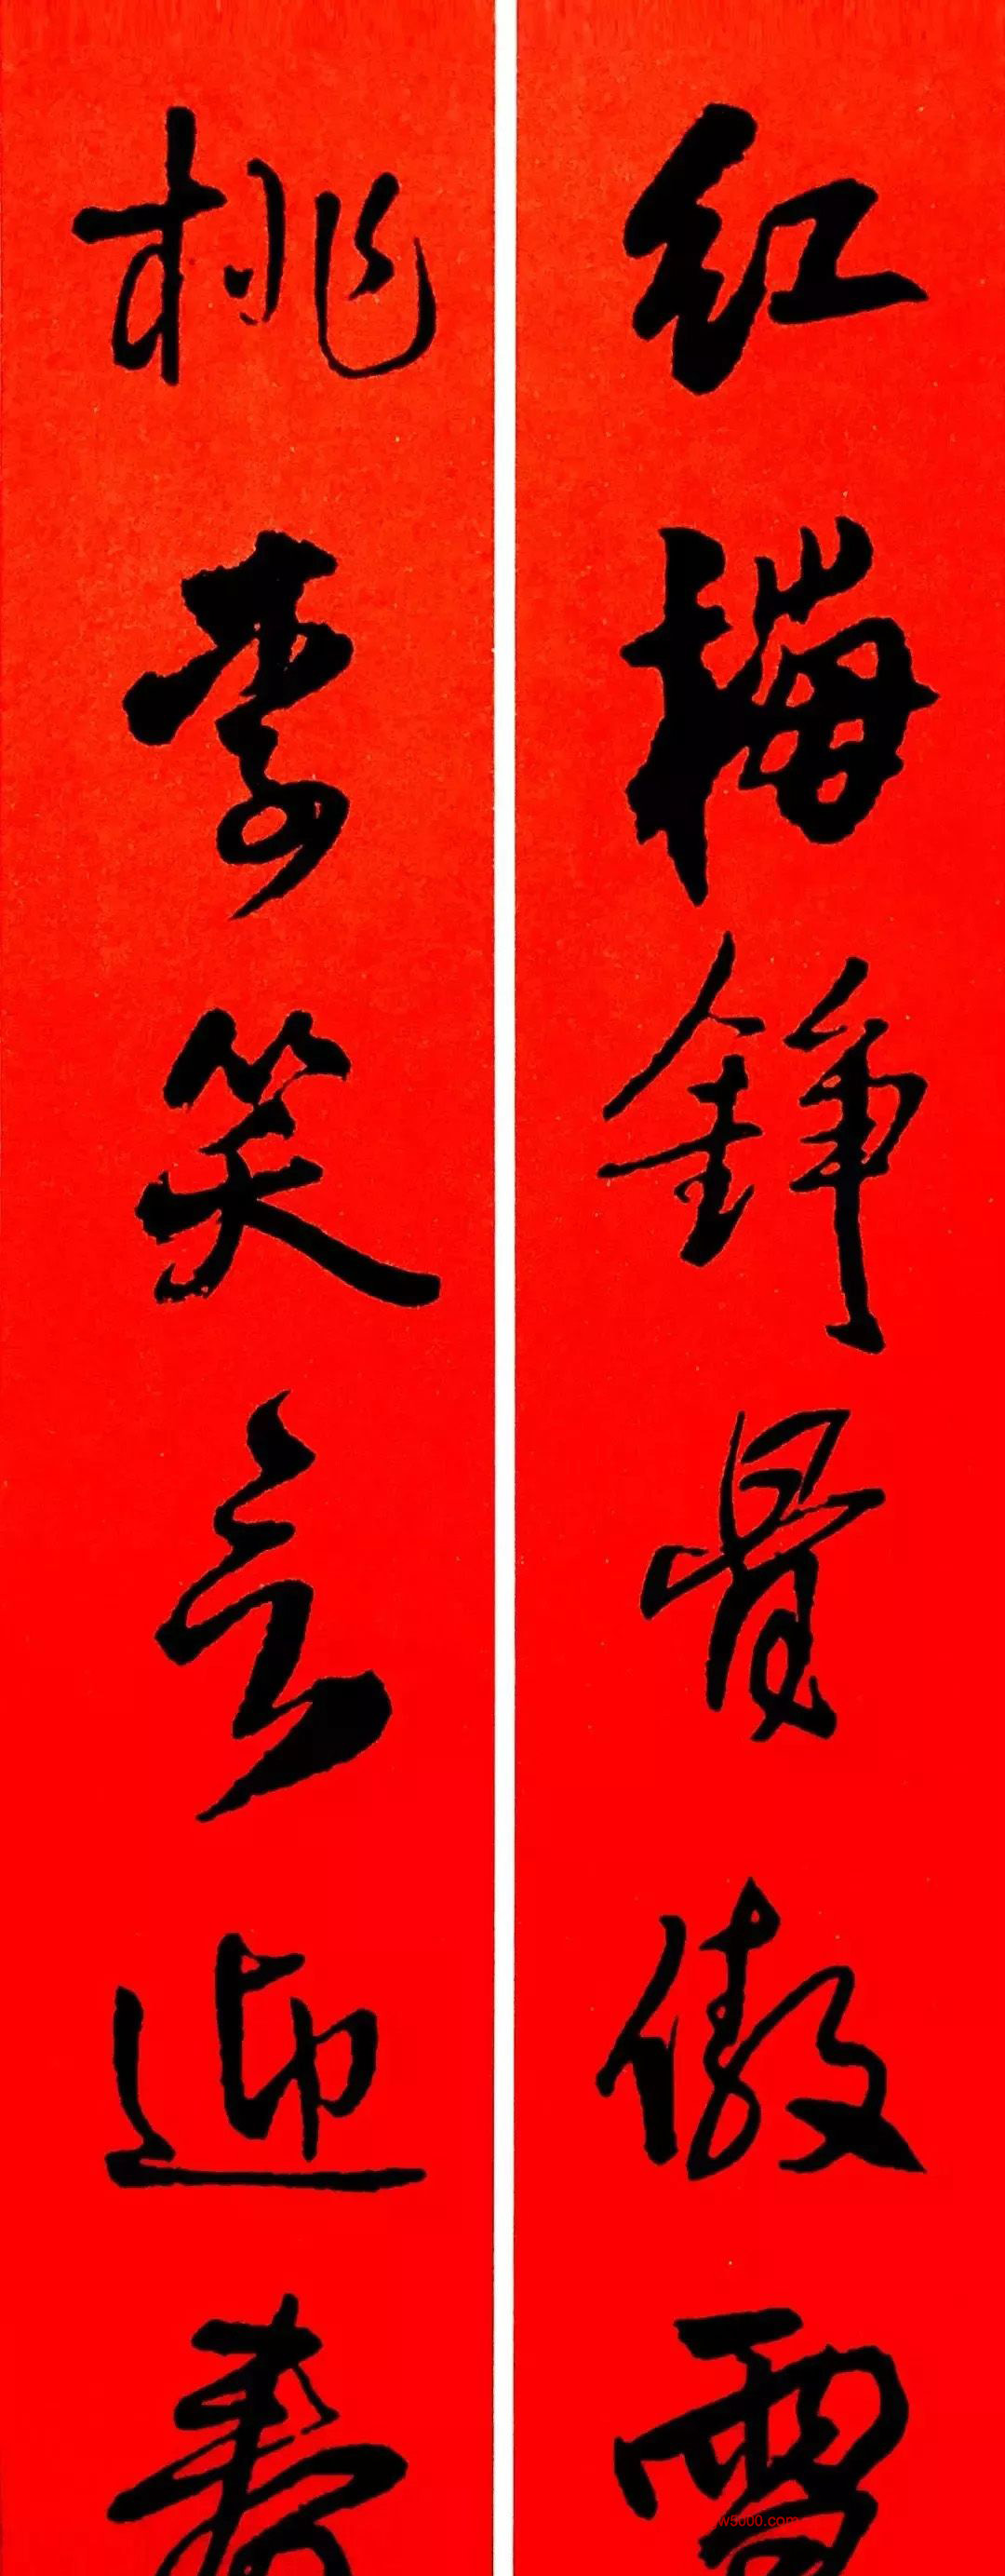 红梅錚骨傲雪
桃李笑言迎春
w5000.com